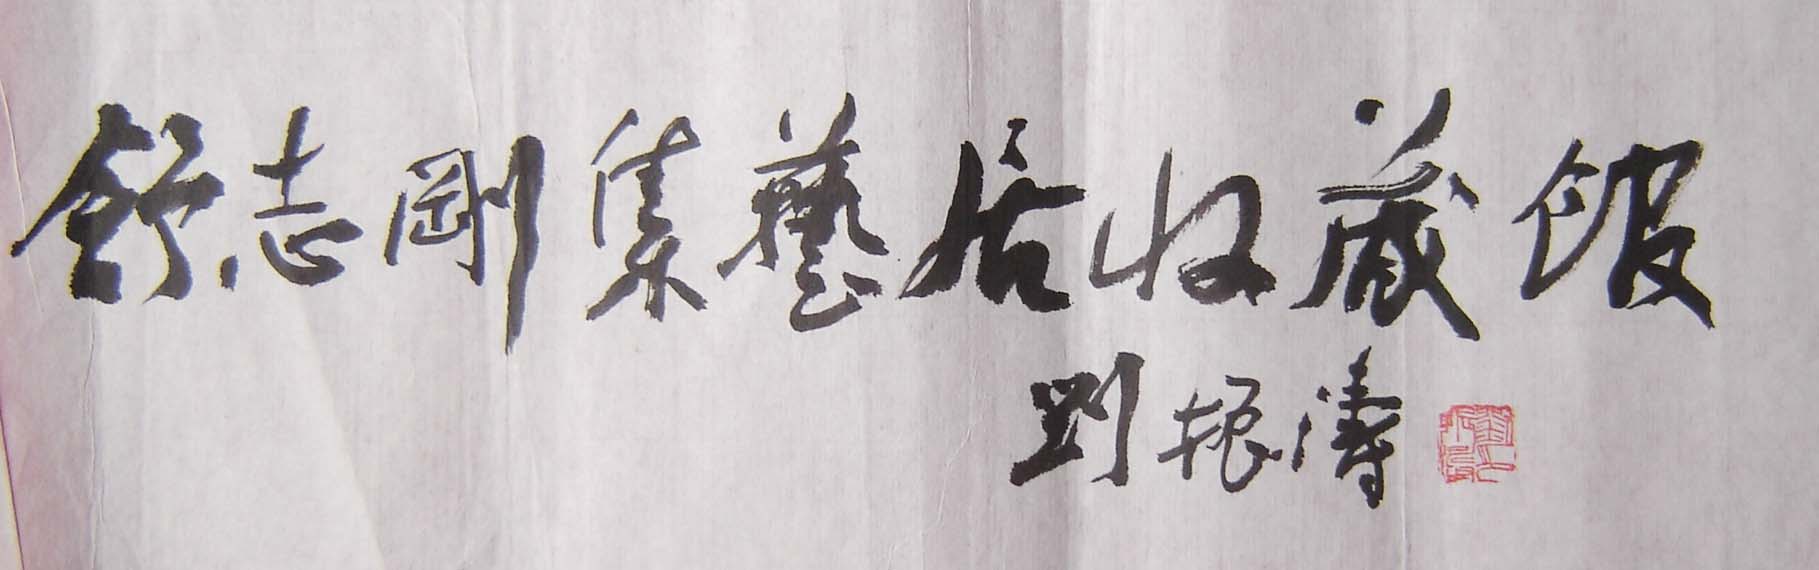 舒志剛集藝居收藏館
劉振濤